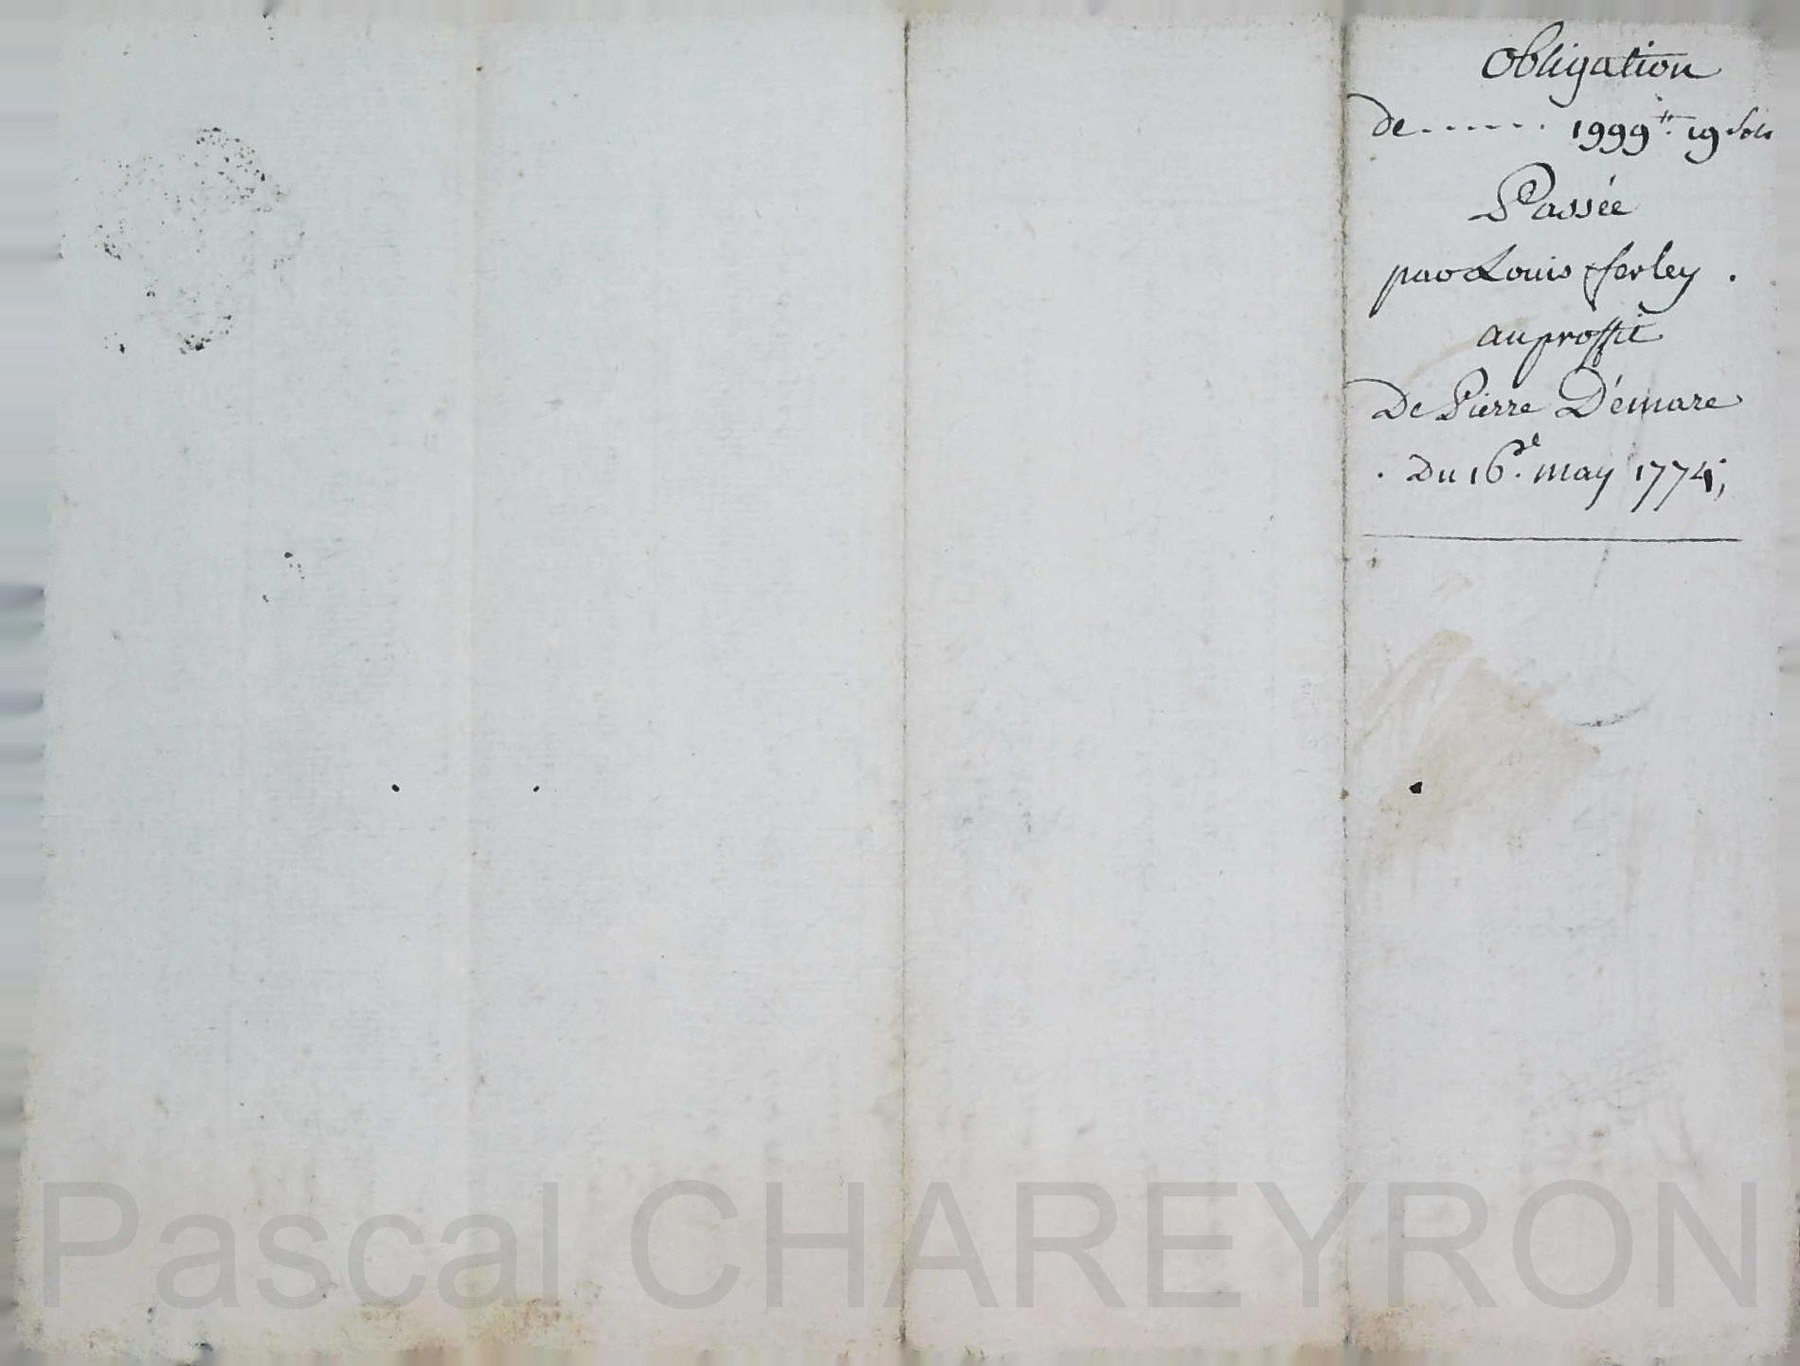 Obligation
de ...... 1999₶. 19 sols
Passée
par Louis ferley .
au proffit
De Pierre Démare
. Du 16.e may 1774;
Pascal CHAREYRON